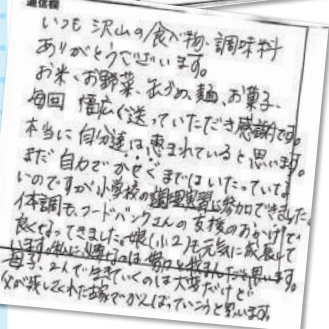 通信欄
いつも 沢山の食べ物・調味料
ありがとうございます。
お米、お野菜、おかめ、麺、お菓子、
毎回 幅広く送っていただき感謝です。
本当に自分達は恵まれていると思います。
まだ自力でかせぐまではいたっていな
いのですが小学校の調理実習に参加できました。
体調も、フードバンクさんの支援のおかげで
良くなってきました。娘(小2)も元気に成長して
います。
母子2人で生きていくのは大変だけど
父が残してくれた家でがんばっていこうと思います。